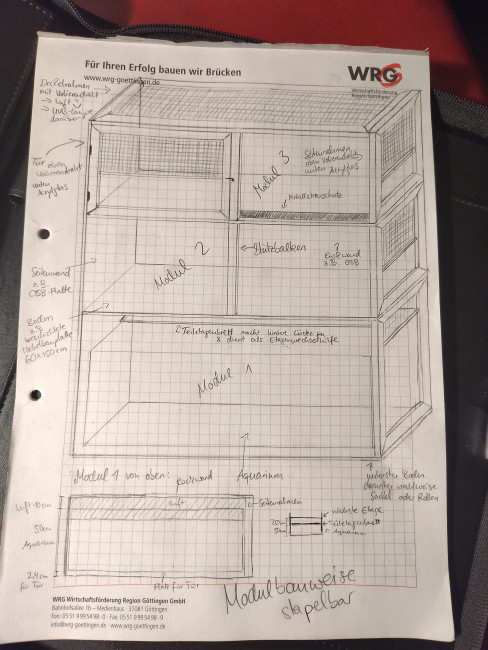 Für Ihren Erfolg bauen wir Brücken
www.wrg-goettingen.de
WRG
Wirtschaftsförderung
Region Göttingen
Deckelrahmen
mit Volierendraht
→ Luft
→ UVB-Lampe
darüber
Tür oben
Volierendraht
unten
Acrylglas
Modul 3
Seitenrahmen
oben Volierendraht
unten Acrylglas
Modul 2
Stützbalken
Rückwand
z.B. OSB
Seitenwand
z.B.
OSB-Platte
Boden
z.B.
beschichtete
Möbelbauplatte
60x150cm
Teiletagenbrett macht hintere Lücke zu
& dient als Etagenwechselhilfe
Modul 1
Modul 1 von oben:
Rückwand
Aquarium
unterster Boden
darunter wahlweise
Sockel oder Rollen
Luft 10cm
Luft
Seitenrahmen
50cm
Aquarium
nächste Etage
Teiletagenbrett
Aquarium
20cm
50cm
2,4cm
für Tür
Platz für Tür
Modulbauweise
stapelbar
WRG Wirtschaftsförderung Region Göttingen GmbH
Bahnhofsallee 1b – Medienhaus · 37081 Göttingen
Fon: 05 51 9 99 54 98 - 0 · Fax: 05 51 9 99 54 98 - 9
info@wrg-goettingen.de · www.wrg-goettingen.de